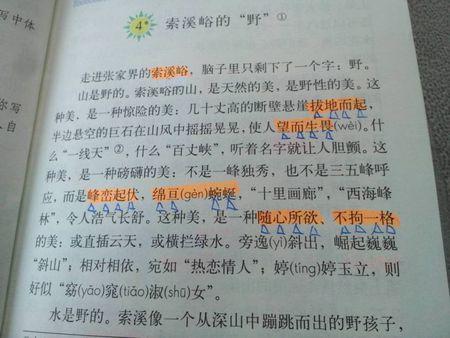 写中体
4*
索溪峪的“野”①
走进张家界的索溪峪，脑子里只剩下了一个字：野。
山是野的。索溪峪的山，是天然的美，是野性的美。这
种美，是一种惊险的美：几十丈高的断壁悬崖拔地而起，
半边悬空的巨石在山风中摇摇晃晃，使人望而生畏(wèi)。什
么“一线天”②，什么“百丈峡”，听着名字就让人胆颤。这
种美，是一种磅礴的美：不是一峰独秀，也不是三五峰呼
应，而是峰峦起伏，绵亘(gèn)蜿蜒，“十里画廊”，“西海峰
林”，令人浩气长舒。这种美，是一种随心所欲、不拘一格
的美：或直插云天，或横拦绿水。旁逸(yì)斜出，崛起巍巍
“斜山”；相对相依，宛如“热恋情人”；婷(tíng)婷玉立，则
好似“窈(yǎo)窕(tiǎo)淑(shū)女”。
水是野的。索溪像一个从深山中蹦跳而出的野孩子，
你写
自